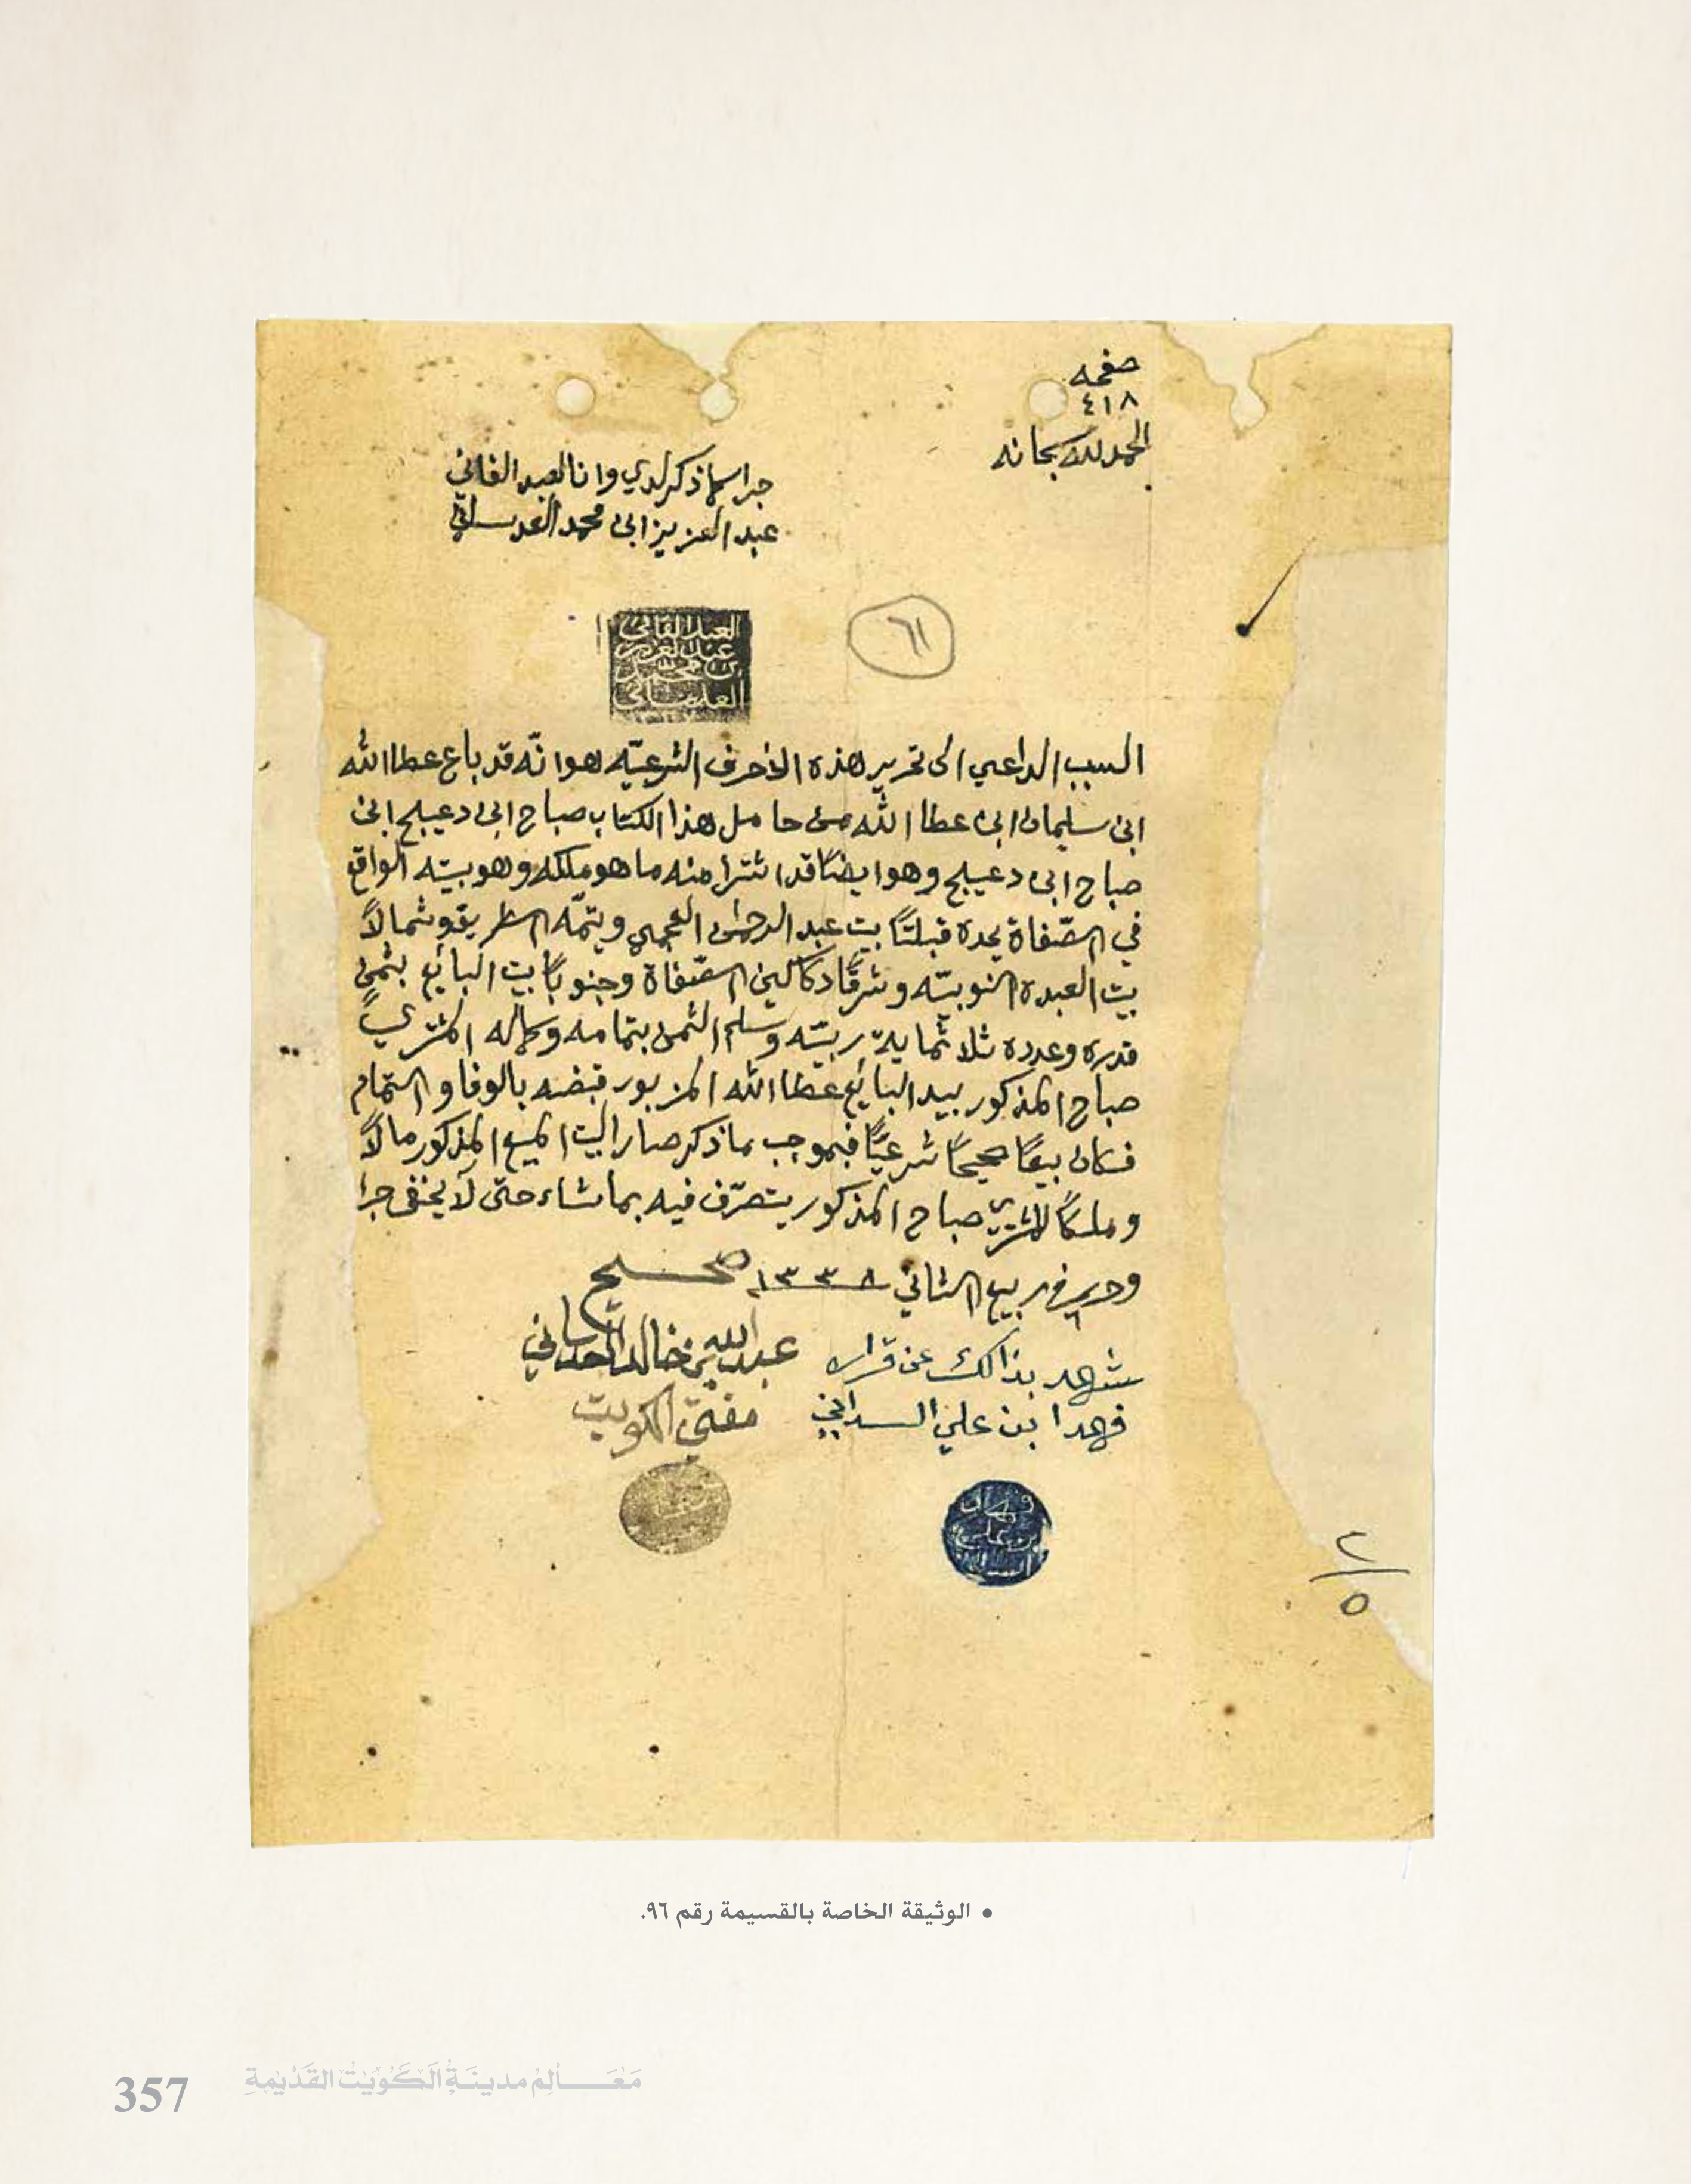 صفحه
٤١٨
الحمد لله سبحانه
جرا ما ذكر لدي وانا العبد الفاني
عبد العزيز ابن محمد العدساني
العبد الفاني
عبد العزيز
بن محمد
العدساني
٦١
السبب الداعي الى تحرير هذه الاحرف الشرعيّه هو انّه قد باع عطا الله
ابن سليمان ابن عطا الله من حامل هذا الكتاب صباح ابن دعيبلج ابن
صباح ابن دعيبلج وهو ايضًا قد اشترا منه ما هو ملكه وهو بيته الواقع
في الصّفاة يحده قبلتًا بيت عبد الرحمن العجمي ويتمّه الطريق وشمالاً
بيت العبدة النوبيّه وشرقًا دكاكين الصّفاة وجنوبًا بيت البايع بثمن
قدره وعدده ثلاثماية ربيّه وسلم الثمن بتمامه وكماله المشتري
صباح المذكور بيد البايع عطا الله المزبور قبضه بالوفا والتمام
فكان بيعًا صحيحًا شرعيًّا فبموجب ما ذكر صار البيت المبيع المذكور مالاً
وملكًا للمشتري صباح المذكور يتصرّف فيه بما شاء حتى لا يخفى جرا
وحرر في ٦ ربيع الثاني ١٣٣٨ صحيح
شهد بذالك عن قراره
عبدالله بن خالد العدساني
فهد ابن علي
مفتي الكويت
بن علي
٢/٥
• الوثيقة الخاصة بالقسيمة رقم ٩٦.
357 مَعَالِمْ مدينَةْ الكُوَيْتْ القَدْيمةِ